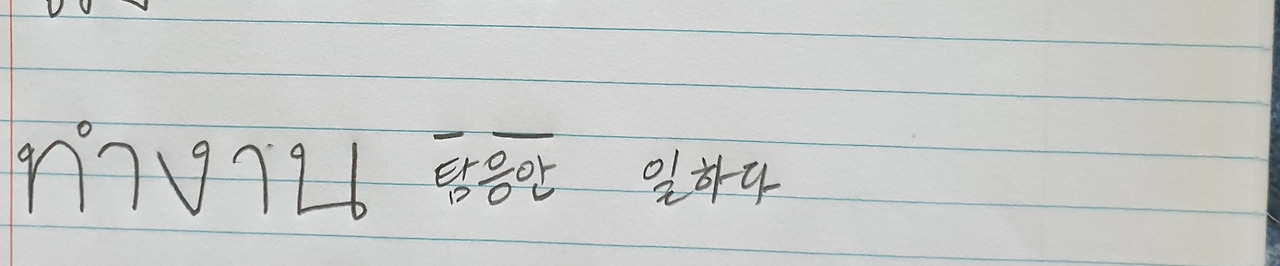 ทำงาน 탐응안 일하다